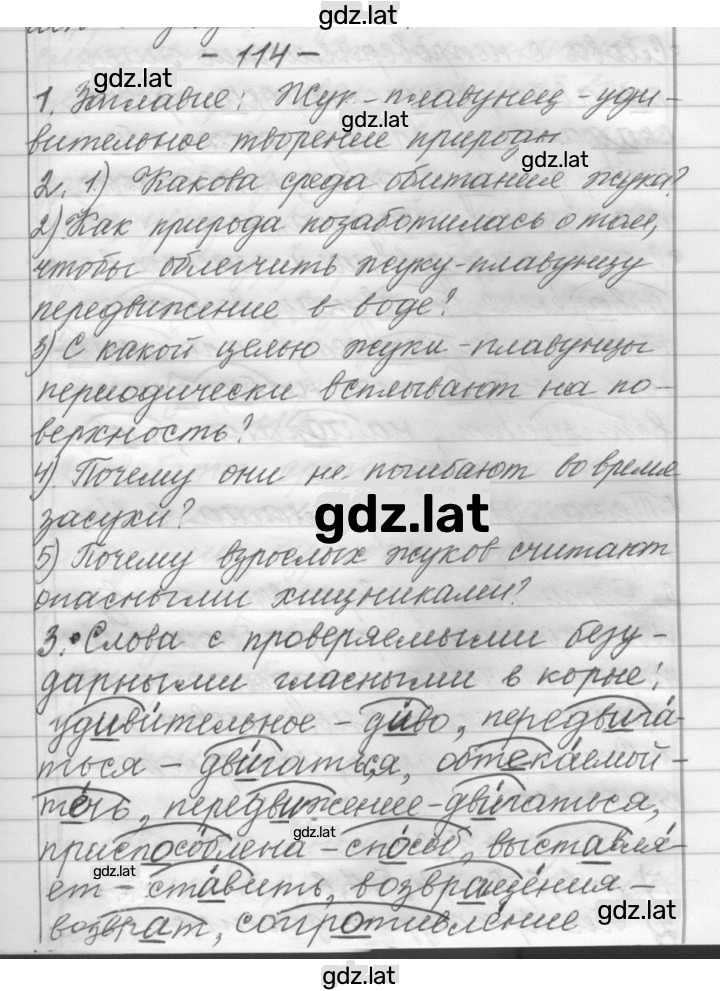 gdz.lat
- 114 -
gdz.lat
1. Заглавие: Жук-плавунец - уди-
gdz.lat
вительное творение природы
gdz.lat
2. 1) Какова среда обитания жука?
2) Как природа позаботилась о том,
чтобы облегчить жуку-плавунцу
передвижение в воде?
3) С какой целью жуки-плавунцы
периодически всплывают на по-
верхность?
4) Почему они не погибают во время
засухи?
gdz.lat
5) Почему взрослых жуков считают
опасными хищниками?
3. Слова с проверяемыми безу-
дарными гласными в корне:
удиви́тельное - ди́во, передвига́-
ться - дви́гаться, обтека́емой -
тёчь, передвиже́ние - дви́гаться,
gdz.lat
приспосо́блена - спо́соб, выставля́-
gdz.lat
ет - ста́вить, возвраще́ния -
gdz.lat
возвра́т, сопротивле́ние
gdz.lat